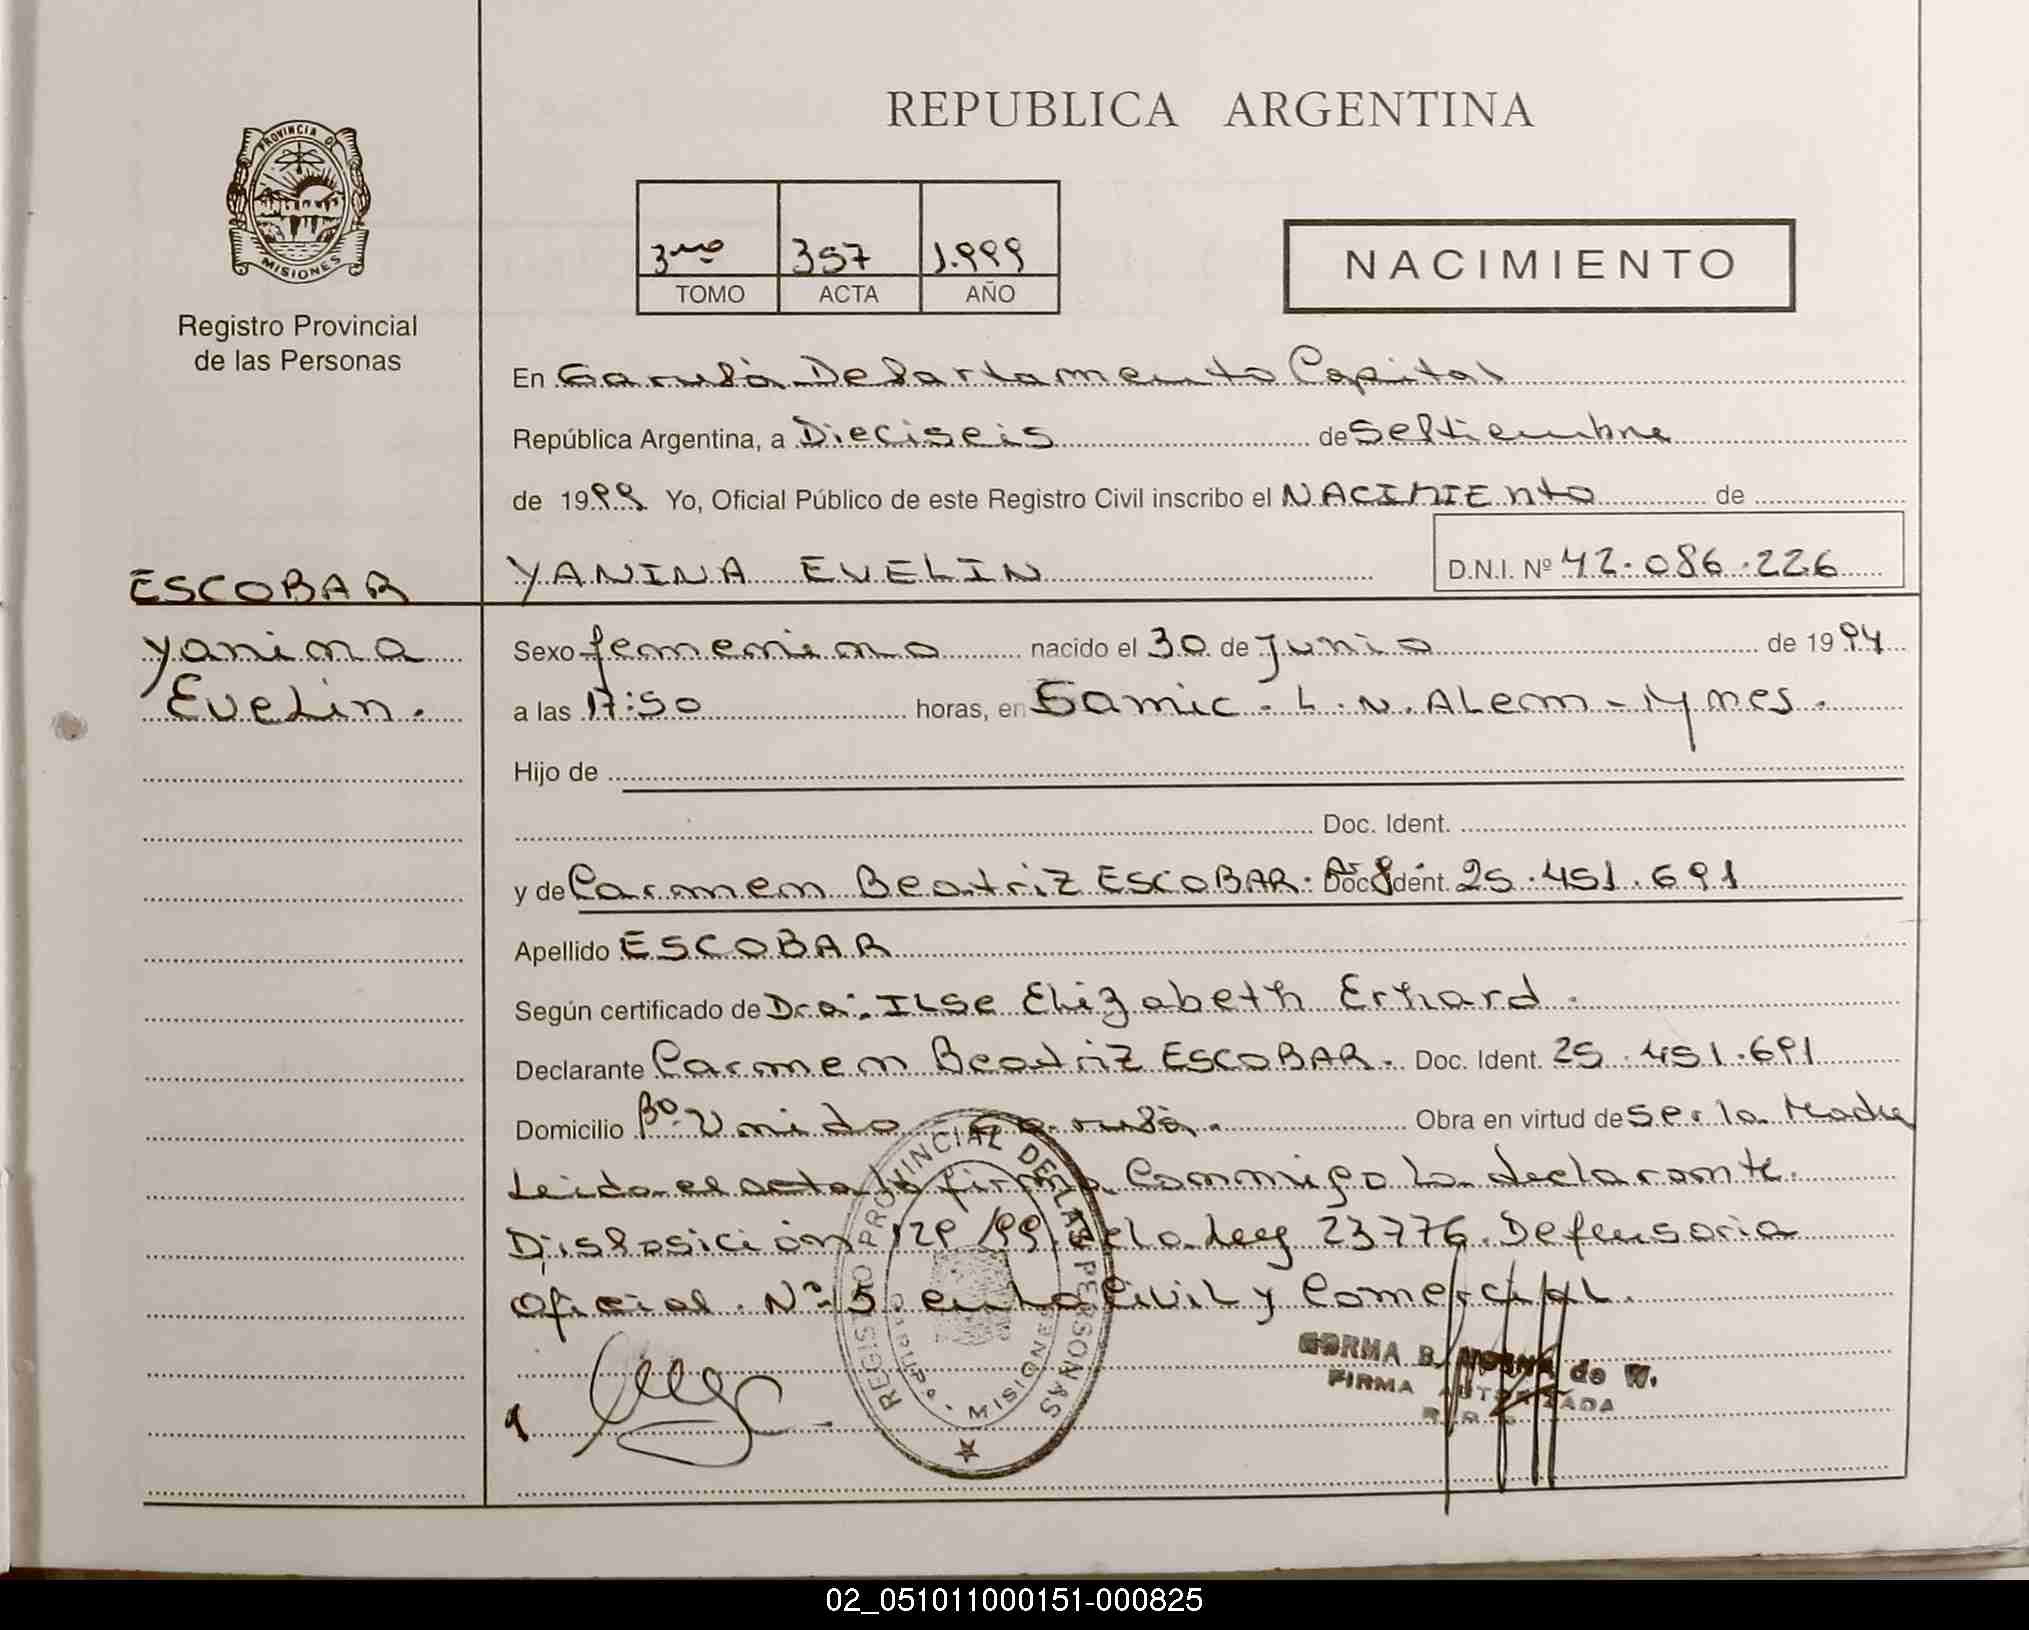 REPUBLICA ARGENTINA
PROVINCIA DE
MISIONES
Registro Provincial
de las Personas
3ero 357 1.999
TOMO ACTA AÑO
NACIMIENTO
En Garupá Departamento Capital
República Argentina, a Dieciseis de Septiembre
de 1999 Yo, Oficial Público de este Registro Civil inscribo el NACIMIENTO de
ESCOBAR
YANINA EVELIN D.N.I. Nº 42.086.226
Yanina
Evelin.
Sexo femenino nacido el 30 de Junio de 1994
a las 17:50 horas, en Samic. L. N. ALem - Mnes.
Hijo de
Doc. Ident.
y de Carmen Beatriz ESCOBAR. Arg Doc. Ident. 25.451.691
Apellido ESCOBAR
Según certificado de Dra. ILSe Elizabeth Erhard.
Declarante Carmen Beatriz ESCOBAR. Doc. Ident. 25.451.691
Domicilio Bº Unido Garupá. Obra en virtud de ser la Madre
Leida el acta la firma Conmigo la declarante.
Disposición 129/99 de la Ley 23776. Defensoria
Oficial Nº 5 en lo Civil y Comercial.
REGISTRO PROVINCIAL DE LAS PERSONAS
MISIONES
NORMA B. de W.
FIRMA AUTORIZADA
02_051011000151-000825